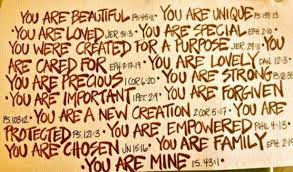 YOU ARE BEAUTIFUL PS.45:11 · YOU ARE UNIQUE PS.139:13
· YOU ARE LOVED JER. 31:3 · YOU ARE SPECIAL EPH. 2:10 ·
YOU WERE CREATED FOR A PURPOSE JER. 29:11 YOU
ARE CARED FOR EPH 3:17-19 · YOU ARE LOVELY DAN. 12:3
· YOU ARE PRECIOUS 1 COR 6:20 · YOU ARE STRONG
· YOU ARE IMPORTANT 1 PET. 2:9 · YOU ARE FORGIVEN
PS. 103:12 · YOU ARE A NEW CREATION 2 COR 5:17 · YOU ARE
PROTECTED PS. 121:3 · YOU ARE EMPOWERED PHIL 4:13 ·
YOU ARE CHOSEN JN 15:16 · YOU ARE FAMILY EPH. 2:19
· YOU ARE MINE · IS. 43:1 ·